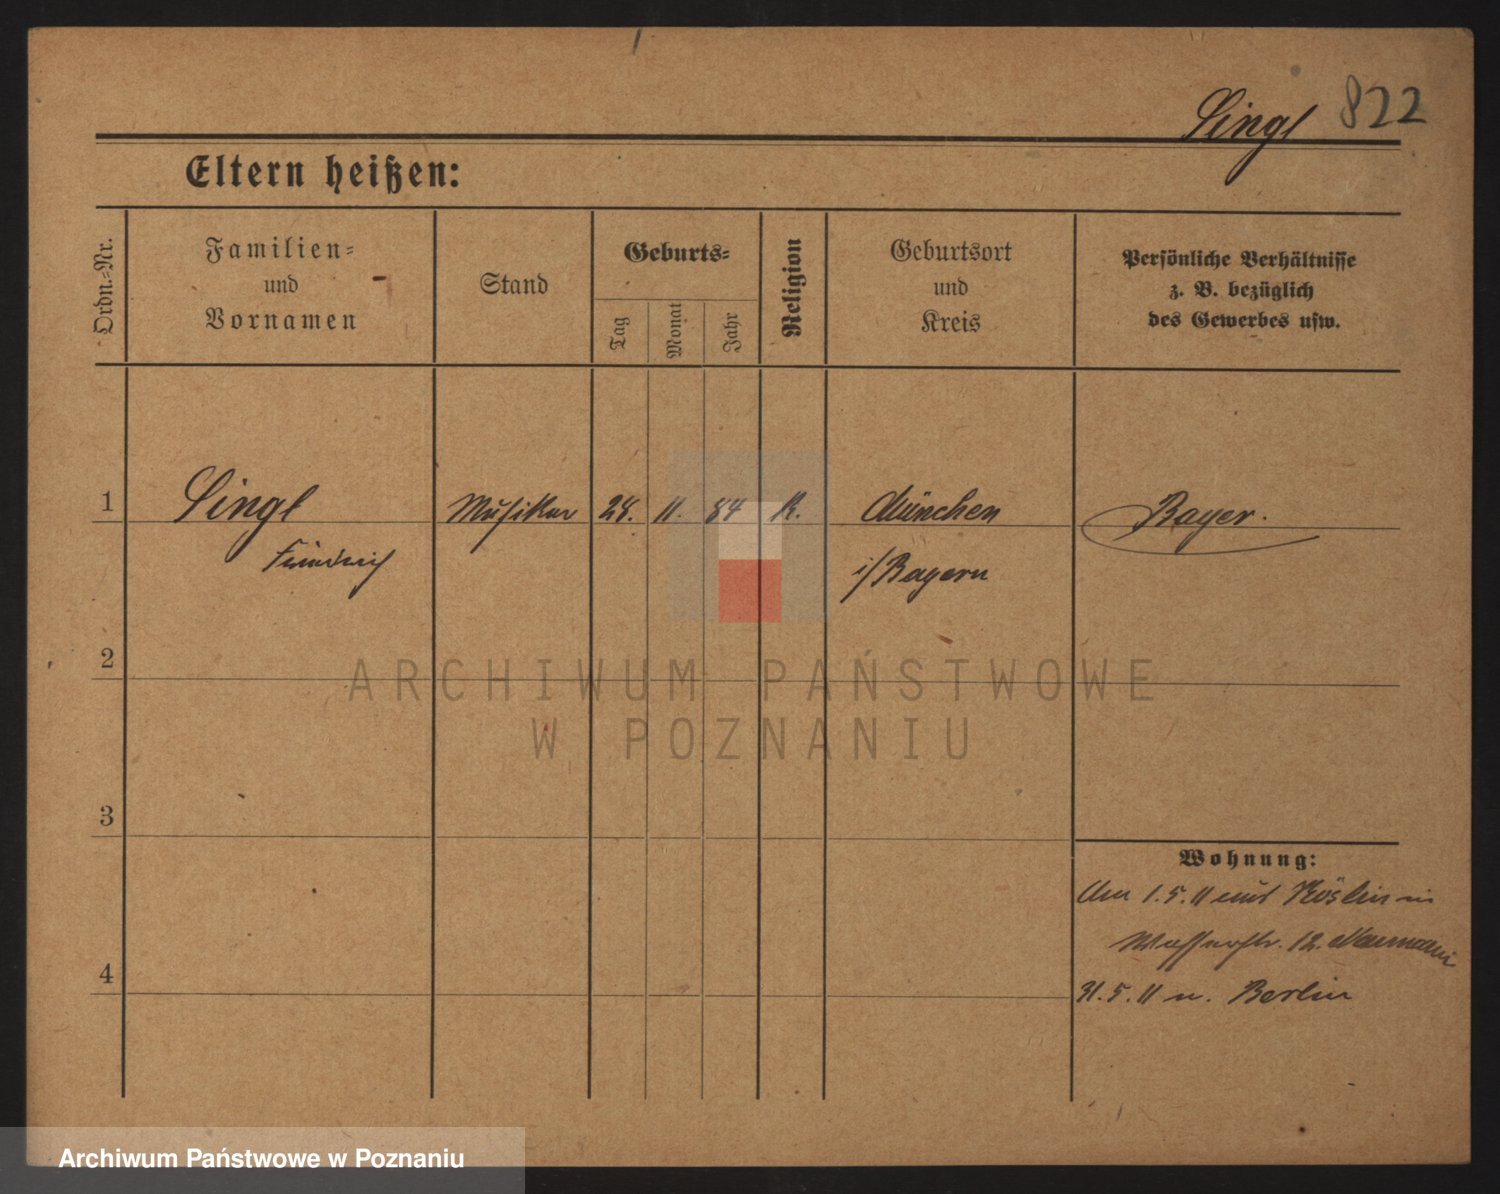 Singl 822
Eltern heißen:
Ordn.-Nr.
Familien-
und
Vornamen
Stand
Geburts-
Tag
Monat
Jahr
Religion
Geburtsort
und
Kreis
Persönliche Verhältnisse
z. B. bezüglich
des Gewerbes usw.
1 Singl Musiker 28. 11. 84 K. München Bayer.
Friedrich i/Bayern
2
ARCHIWUM PAŃSTWOWE
W POZNANIU
3
Wohnung:
Am 1.5.11 aus Köslin in
Wasserstr. 12.
4
31.5.11 n. Berlin
Archiwum Państwowe w Poznaniu